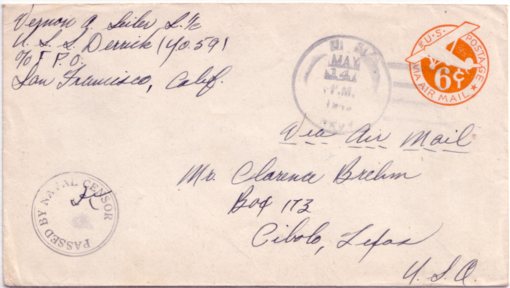 Vernon A. Seiler S 1/c
U.S.S. Derrick (YO.59)
℅ F.P.O.
San Francisco, Calif.
MAY
P.M.
U.S. POSTAGE
6¢
VIA AIR MAIL
Via Air Mail
Mr. Clarence Brehm
Box 173
Cibolo, Texas
U.S.A.
PASSED BY NAVAL CENSOR